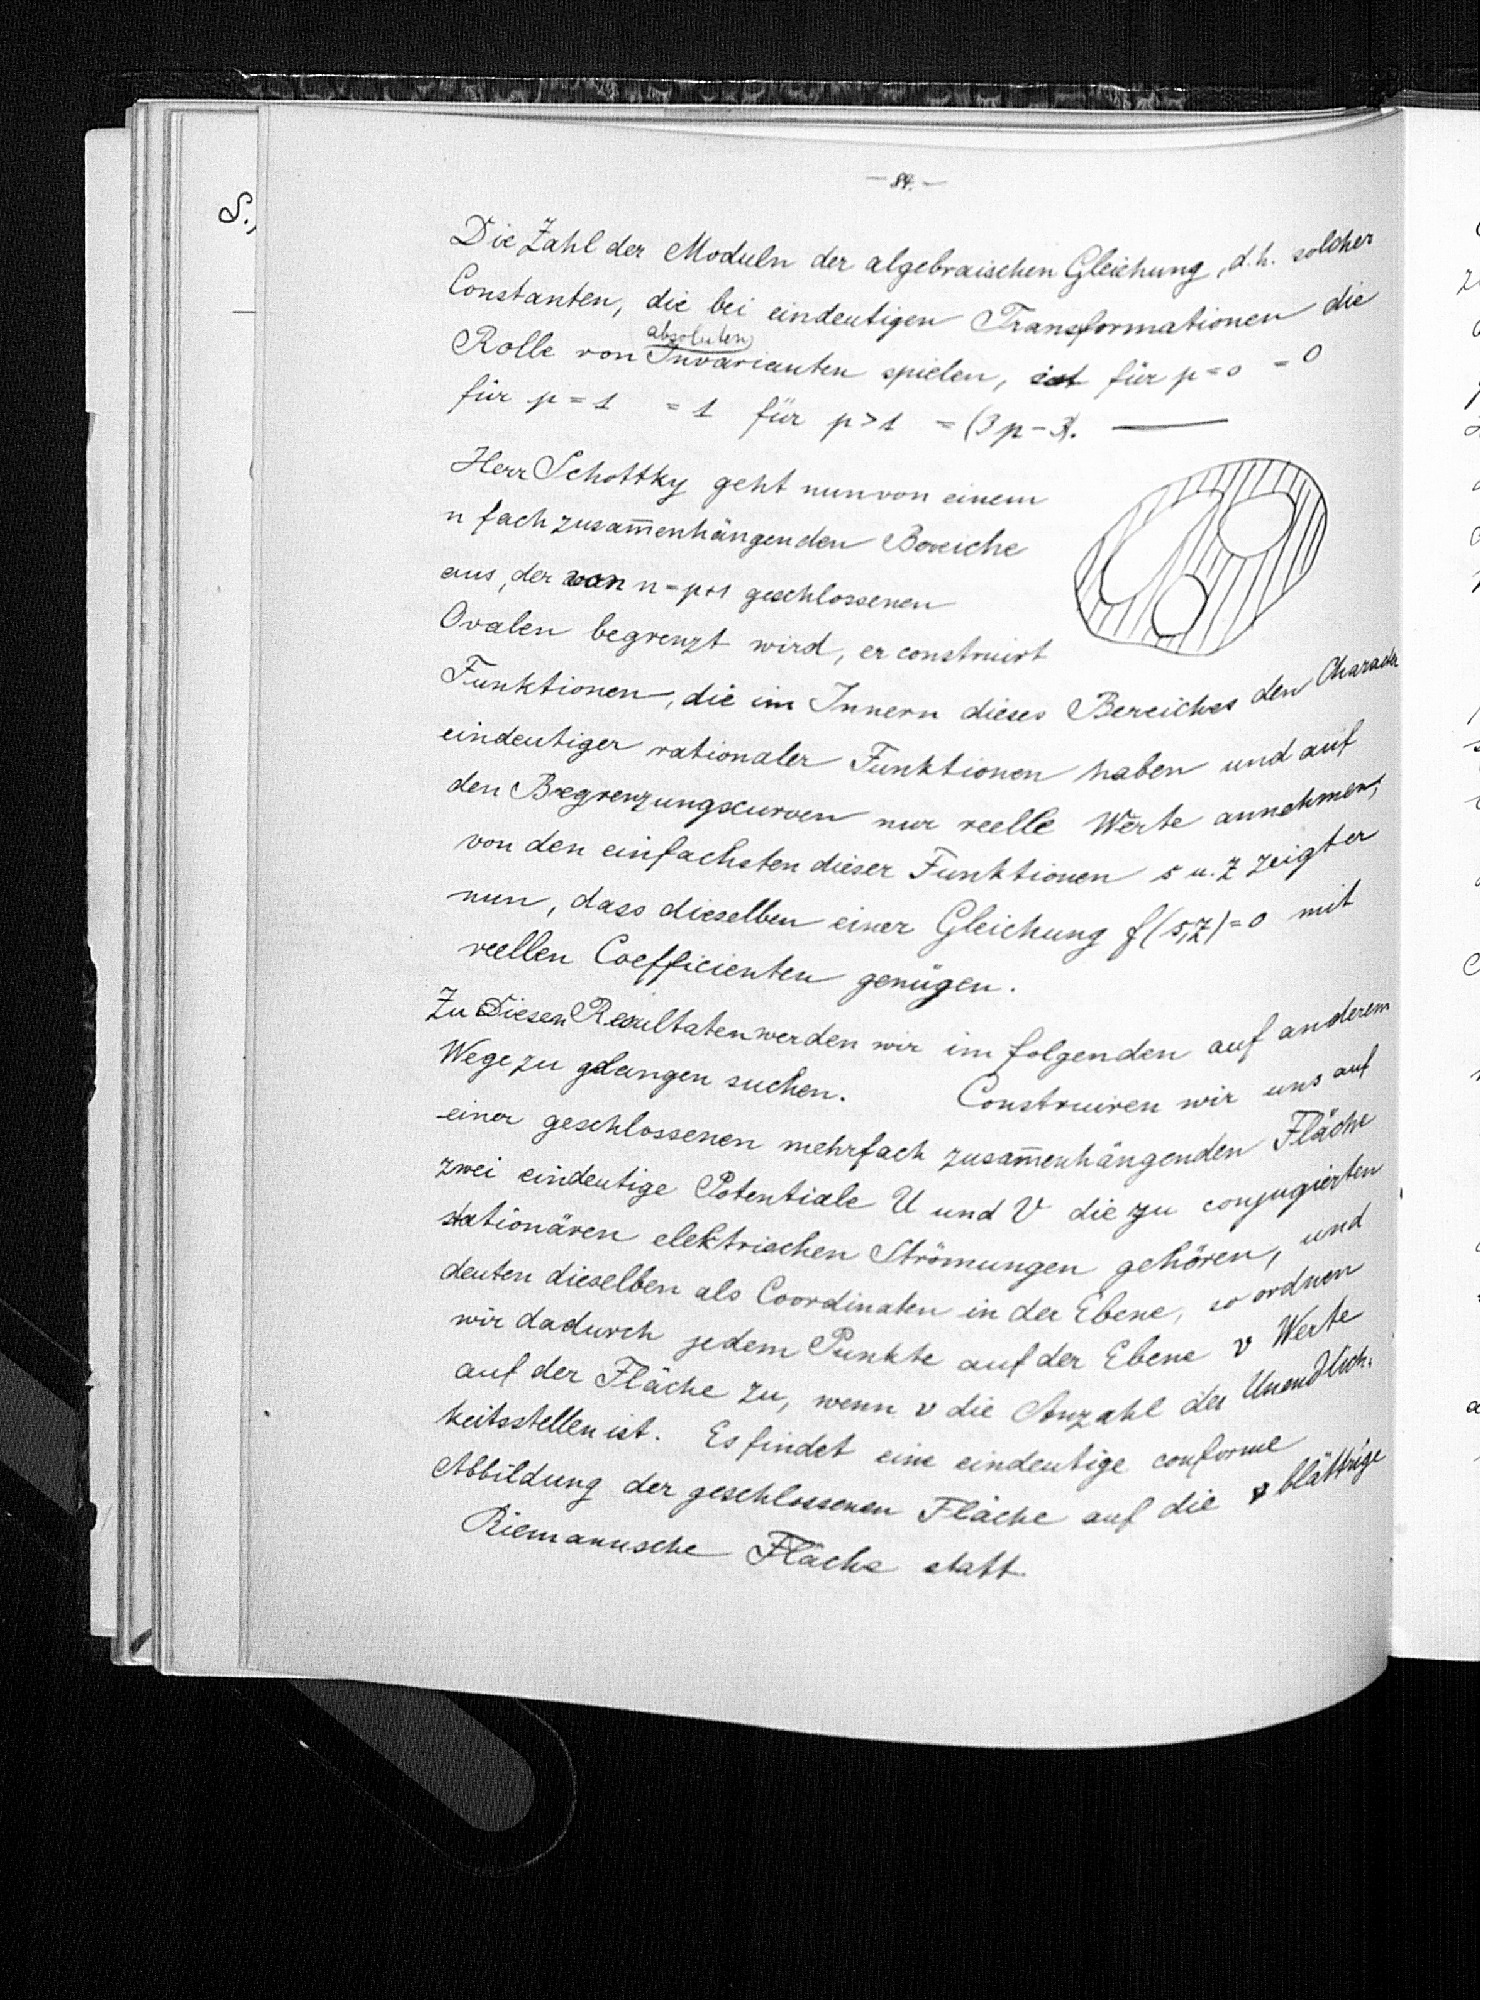 — 84. —
Die Zahl der Moduln der algebraischen Gleichung, d.h. solcher
Constanten, die bei eindeutigen Transformationen die
absoluten
Rolle von Invarianten spielen, ist für p=0 =0
für p=1 =1 für p>1 =(3p-3).
Herr Schottky geht nun von einem
n fach zusam̅enhängenden Bereiche
aus, der von n=p+1 geschlossenen
Ovalen begrenzt wird, er construirt
Funktionen, die im Innern dieses Bereiches den Charakter
eindeutiger rationaler Funktionen haben und auf
den Begrenzungscurven nur reelle Werte annehmen;
von den einfachsten dieser Funktionen s u. z zeigt er
nun, dass dieselben einer Gleichung f(s,z)=0 mit
reellen Coefficienten genügen.
Zu Diesen Resultaten werden wir im folgenden auf anderem
Wege zu gelangen suchen. Construiren wir uns auf
einer geschlossenen mehrfach zusam̅enhängenden Fläche
zwei eindeutige Potentiale U und V die zu conjugierten
stationären elektrischen Strömungen gehören, und
deuten dieselben als Coordinaten in der Ebene, so ordnen
wir dadurch jedem Punkte auf der Ebene ν Werte
auf der Fläche zu, wenn ν die Anzahl der Unendlich-
keitsstellen ist. Es findet eine eindeutige conforme
Abbildung der geschlossenen Fläche auf die ν blättrige
Riemannsche Fläche statt.
S.,